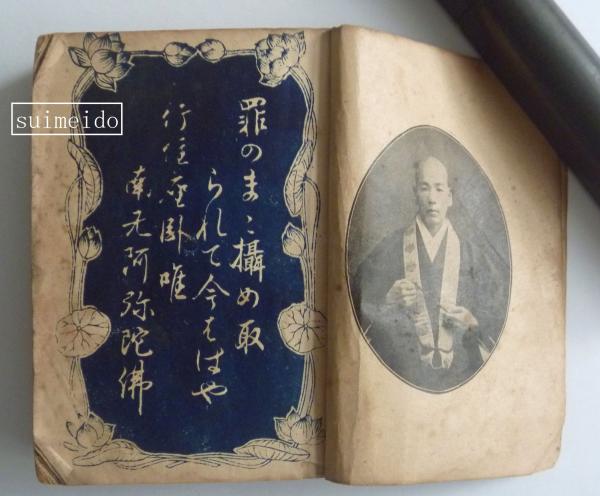 suimeido
罪のまゝ攝め取
られて今はゝや
行住座臥唯
南无阿弥陀佛